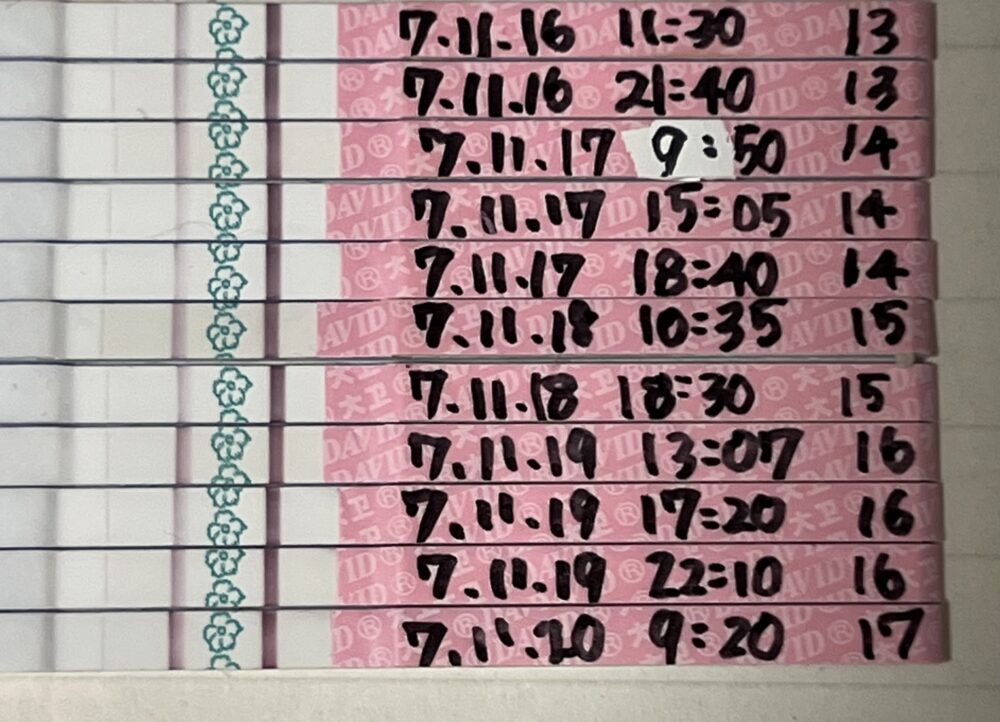 7.11.16 11:30 13
7.11.16 21:40 13
7.11.17 9:50 14
7.11.17 15:05 14
7.11.17 18:40 14
7.11.18 10:35 15
7.11.18 18:30 15
7.11.19 13:07 16
7.11.19 17:20 16
7.11.19 22:10 16
7.11.20 9:20 17
DAVID® 大卫